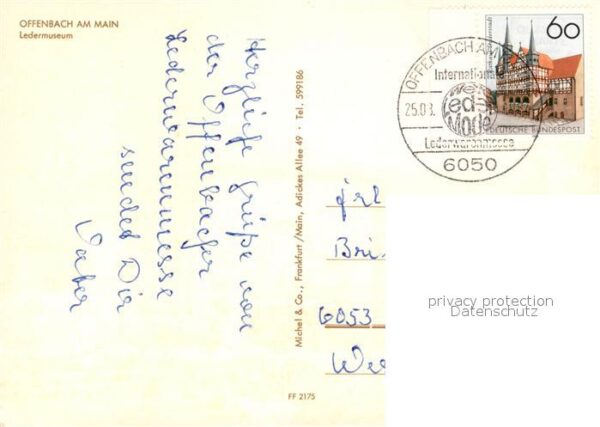 OFFENBACH AM MAIN
Ledermuseum
Herzliche Grüße von
der Offenbacher
Lederwarenmesse
sendet Dir
Vater
Michel & Co., Frankfurt/Main, Adickes Allee 49 · Tel. 599186
FF 2175
60
DEUTSCHE BUNDESPOST
OFFENBACH AM
Internationale
Leder
Mode
25.03.
Lederwarenmesse
6050
Frl
6053
privacy protection
Datenschutz